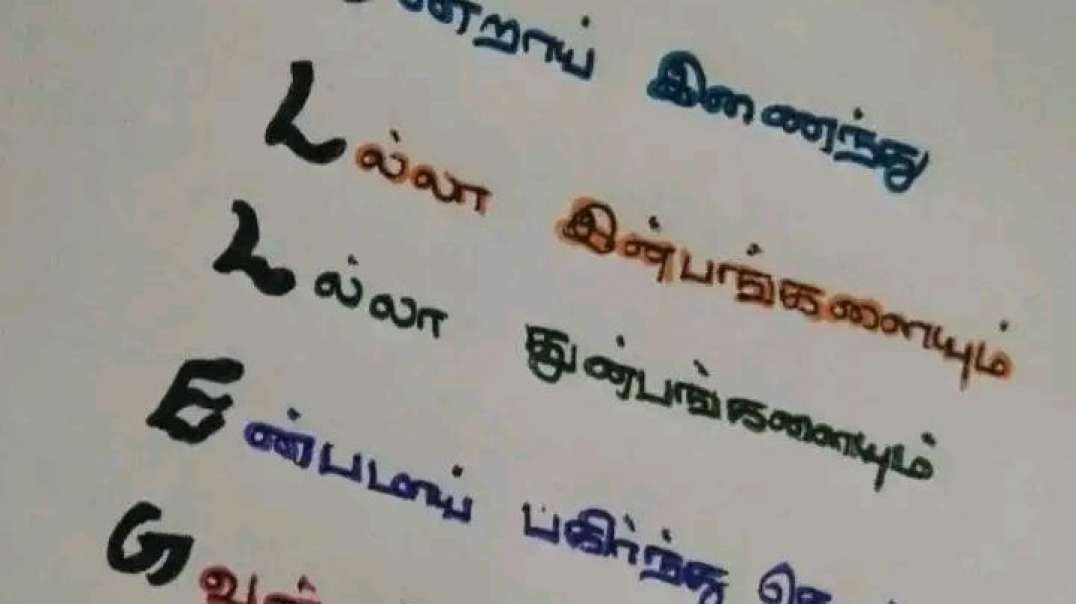 ன்றாய் இணைந்து
Lல்லா இன்பங்களையும்
Lல்லா துன்பங்களையும்
Eன்பமாய் பகிர்ந்து
G